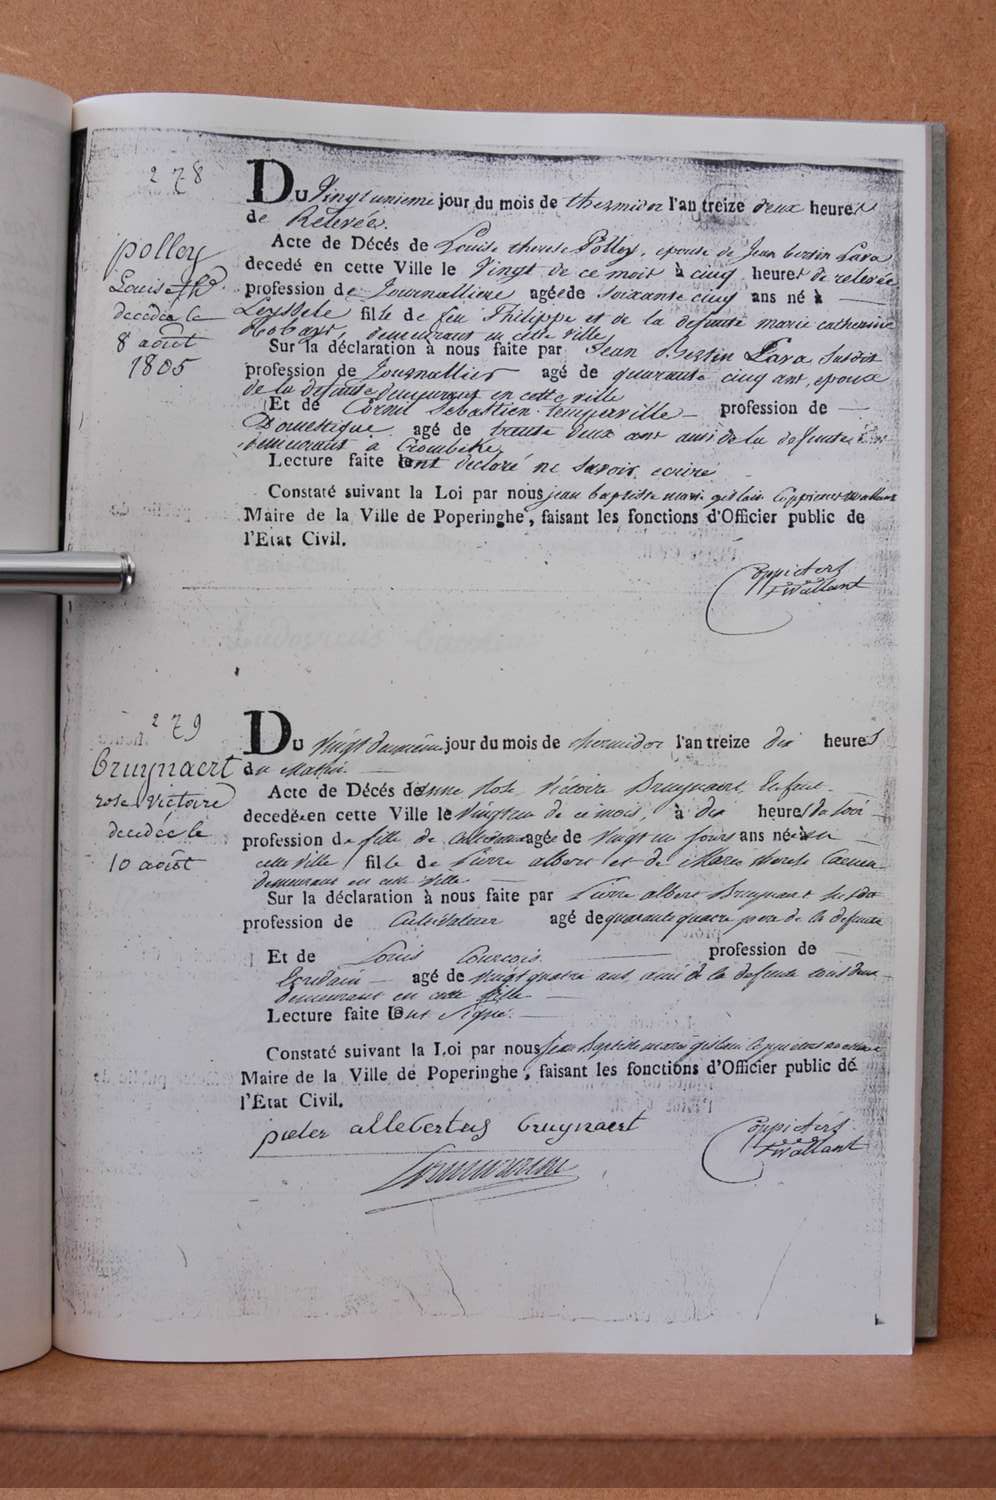 278
Du Vingtunieme jour du mois de thermidor l'an treize deux heures
de Relevée.
polley
Louise th.
decedée le
8 août
1805
Acte de Décés de Louise therese Polley, epouse de Jean bertin Lava
decedé en cette Ville le Vingt de ce mois à cinq heures de relevée
profession de Journalliere agée de soixante cinq ans né à
Leysele fille de feu Philippe et de la defunte marie catherine
demeurant en cette ville
Sur la déclaration à nous faite par Jean Bertin Lava susdit
profession de Journallier agé de quarante cinq ans, epoux
de la defunte demeurant en cette ville
Et de Cornil Sebastien profession de
Domestique agé de trente deux ans ami de la defunte
demeurant à Crombeke
Lecture faite ont declaré ne savoir ecrire
Constaté suivant la Loi par nous jean baptiste marie gislain Coppieters twallant
Maire de la Ville de Poperinghe, faisant les fonctions d'Officier public de
l'Etat Civil.
Coppieters
twallant
279
Du Vingt deuxième jour du mois de thermidor l'an treize dix heures
du Matin.
bruynaert
rose victoire
decedée le
10 août
Acte de Décés de anne Rose Victoire Bruynaert, Enfant
decedé en cette Ville le Vingt un de ce mois, à dix heures du soir
profession de fille de agée de Vingt un jours ans né en
cette ville fille de Pierre albert et de Marie therese
demeurant en cette ville
Sur la déclaration à nous faite par Pierre albert Bruynaert susdit
profession de Cultivateur agé de quarante quatre pere de la defunte
Et de Louis Courcois profession de
Ecrivain agé de vingt quatre ans, ami de la defunte tous deux
demeurant en cette Ville
Lecture faite ont signé.
Constaté suivant la Loi par nous Jean Baptiste marie gislain Coppieters twallant
Maire de la Ville de Poperinghe, faisant les fonctions d'Officier public de
l'Etat Civil.
pieter allebertus bruynaert
Coppieters
twallant